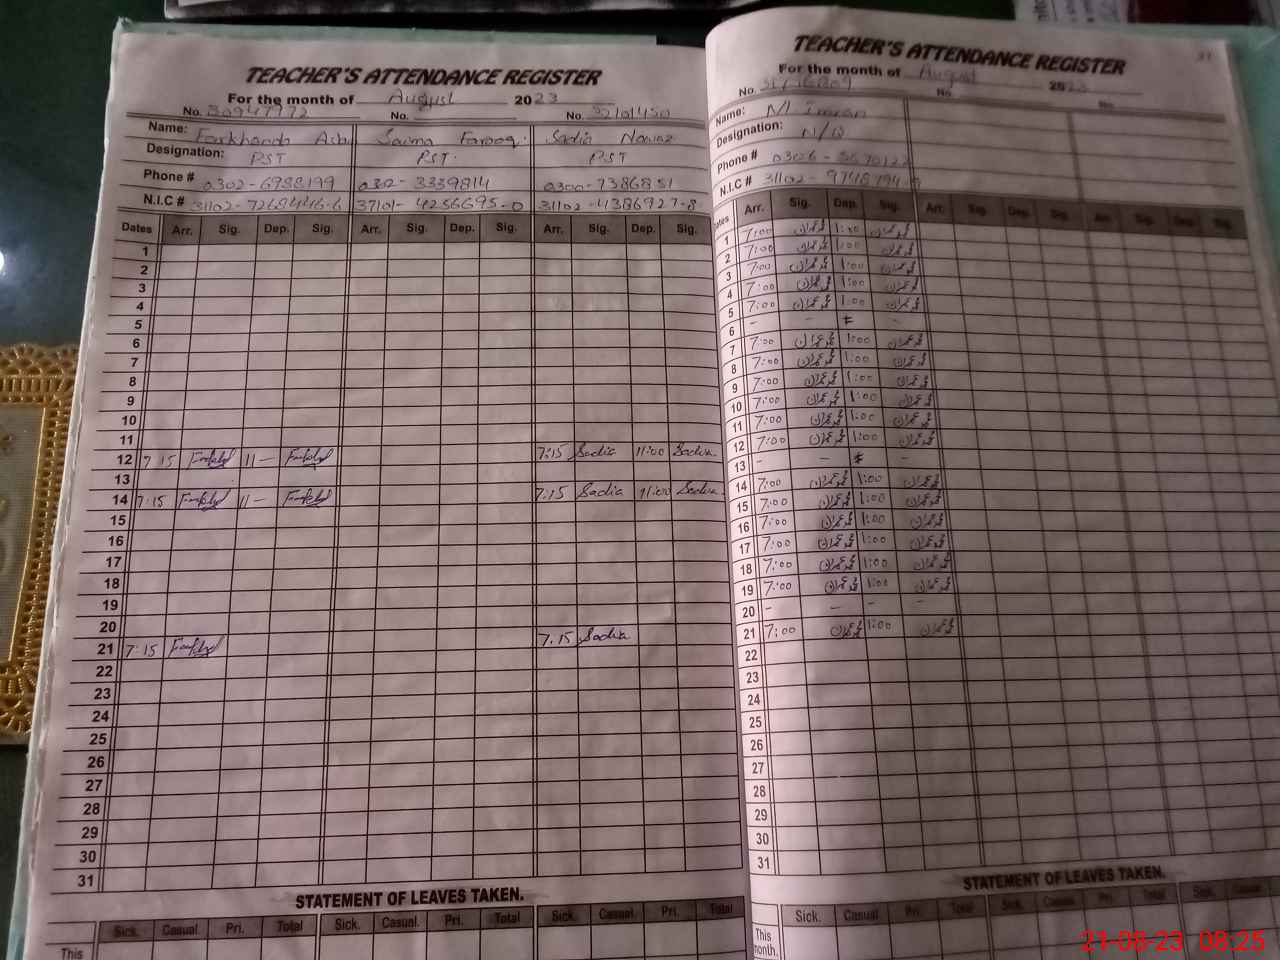 TEACHER'S ATTENDANCE REGISTER
For the month of August 2023
No. 30947972 No. No. 32101450
Name: Farkhanda Saima Farooq. Sadia Nawaz
Designation: PST PST. PST
Phone # 0302-6988199 0312-3339814 0300-7386851
N.I.C # 31102-7268446-6 37101-4256695-0 31102-4386927-8
Dates Arr. Sig. Dep. Sig. Arr. Sig. Dep. Sig. Arr. Sig. Dep. Sig.
1
2
3
4
5
6
7
8
9
10
11
12 7:15 11 — 7:15 Sadia 11:00 Sadia
13
14 7:15 11 — 7:15 Sadia 11:00 Sadia
15
16
17
18
19
20
21 7:15 7.15 Sadia
22
23
24
25
26
27
28
29
30
31
STATEMENT OF LEAVES TAKEN.
Sick. Casual. Pri. Total Sick. Casual. Pri. Total Sick. Casual. Pri. Total
This
TEACHER'S ATTENDANCE REGISTER
For the month of August 2023
No. No. No.
Name: M Imran
Designation: N/Q
Phone # 0306-
N.I.C # 31102-
Dates Arr. Sig. Dep. Sig. Arr. Sig. Dep. Sig. Arr. Sig. Dep. Sig.
1 7:00 محمد عمران 1:00 محمد عمران
2 7:00 محمد عمران 1:00 محمد عمران
3 7:00 محمد عمران 1:00 محمد عمران
4 7:00 محمد عمران 1:00 محمد عمران
5 7:00 محمد عمران 1:00 محمد عمران
6 - - -
7 7:00 محمد عمران 1:00 محمد عمران
8 7:00 محمد عمران 1:00 محمد عمران
9 7:00 محمد عمران 1:00 محمد عمران
10 7:00 محمد عمران 1:00 محمد عمران
11 7:00 محمد عمران 1:00 محمد عمران
12 7:00 محمد عمران 1:00 محمد عمران
13 - - -
14 7:00 محمد عمران 1:00 محمد عمران
15 7:00 محمد عمران 1:00 محمد عمران
16 7:00 محمد عمران 1:00 محمد عمران
17 7:00 محمد عمران 1:00 محمد عمران
18 7:00 محمد عمران 1:00 محمد عمران
19 7:00 محمد عمران 1:00 محمد عمران
20 - - - -
21 7:00 محمد عمران 1:00 محمد عمران
22
23
24
25
26
27
28
29
30
31
STATEMENT OF LEAVES TAKEN.
Sick. Casual. Pri. Total Sick. Casual. Pri. Total Sick. Casual.
This
month.
21-08-23 08:25